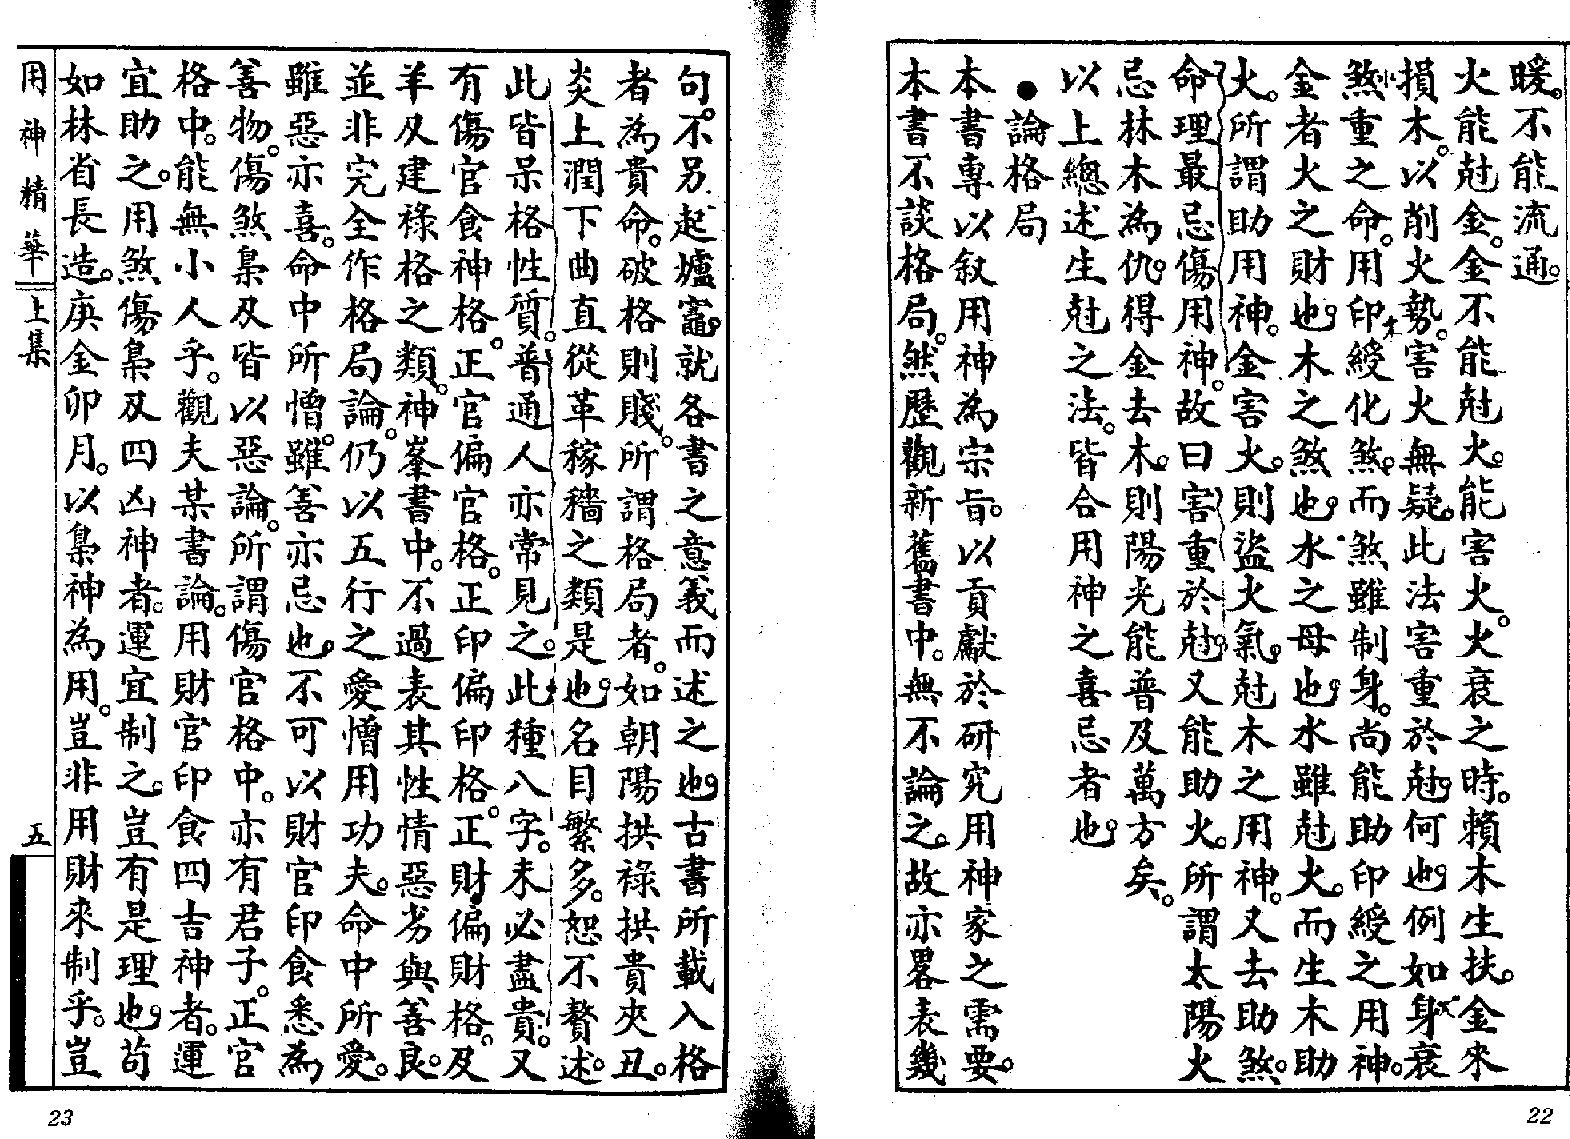 暖。不能流通。
火能尅金。金不能尅火。能害火。火衰之時。賴木生扶。金來
損木。以削火勢。害火無疑。此法害重於尅也。何也。例如身衰
煞重之命。用印綬化煞。而煞雖制身。尚能助印綬之用神。
金者火之財也。木之煞也。水之母也。水雖尅火。而生木助
火。所謂助用神。金害火。則盜火氣。尅木之用神。又去助煞。
命理最忌傷用神。故曰害重於尅。又能助火。所謂太陽火
忌林木為仇。得金去木。則陽光能普及萬方矣。
以上總述生尅之法。皆合用神之喜忌者也。
●論格局
本書專以叙用神為宗旨。以貢獻於研究用神家之需要。
本書不談格局。然歷觀新舊書中。無不論之。故亦畧表幾
22
句。不另起爐竈。就各書之意義而述之也。古書所載入格
者為貴命。破格則賤。所謂格局者。如朝陽拱祿拱貴夾丑。
炎上潤下曲直從革稼穡之類是也。名目繁多。恕不贅述。
此皆呆格性質。普通人亦常見之。此種八字。未必盡貴。又
有傷官食神格。正官偏官格。正印偏印格。正財偏財格。及
羊刃建祿格之類。神峯書中。不過表其性情惡劣與善良。
並非完全作格局論。仍以五行之愛憎用功夫。命中所愛。
雖惡亦喜。命中所憎。雖善亦忌也。不可以財官印食悉為
善物。傷煞梟刃皆以惡論。所謂傷官格中。亦有君子。正官
格中。能無小人乎。觀夫某書論。用財官印食四吉神者。運
宜助之。用煞傷梟刃四凶神者。運宜制之。豈有是理也。苟
如林省長造。庚金卯月。以梟神為用。豈非用財來制乎。豈
用神精華 上集 五
23